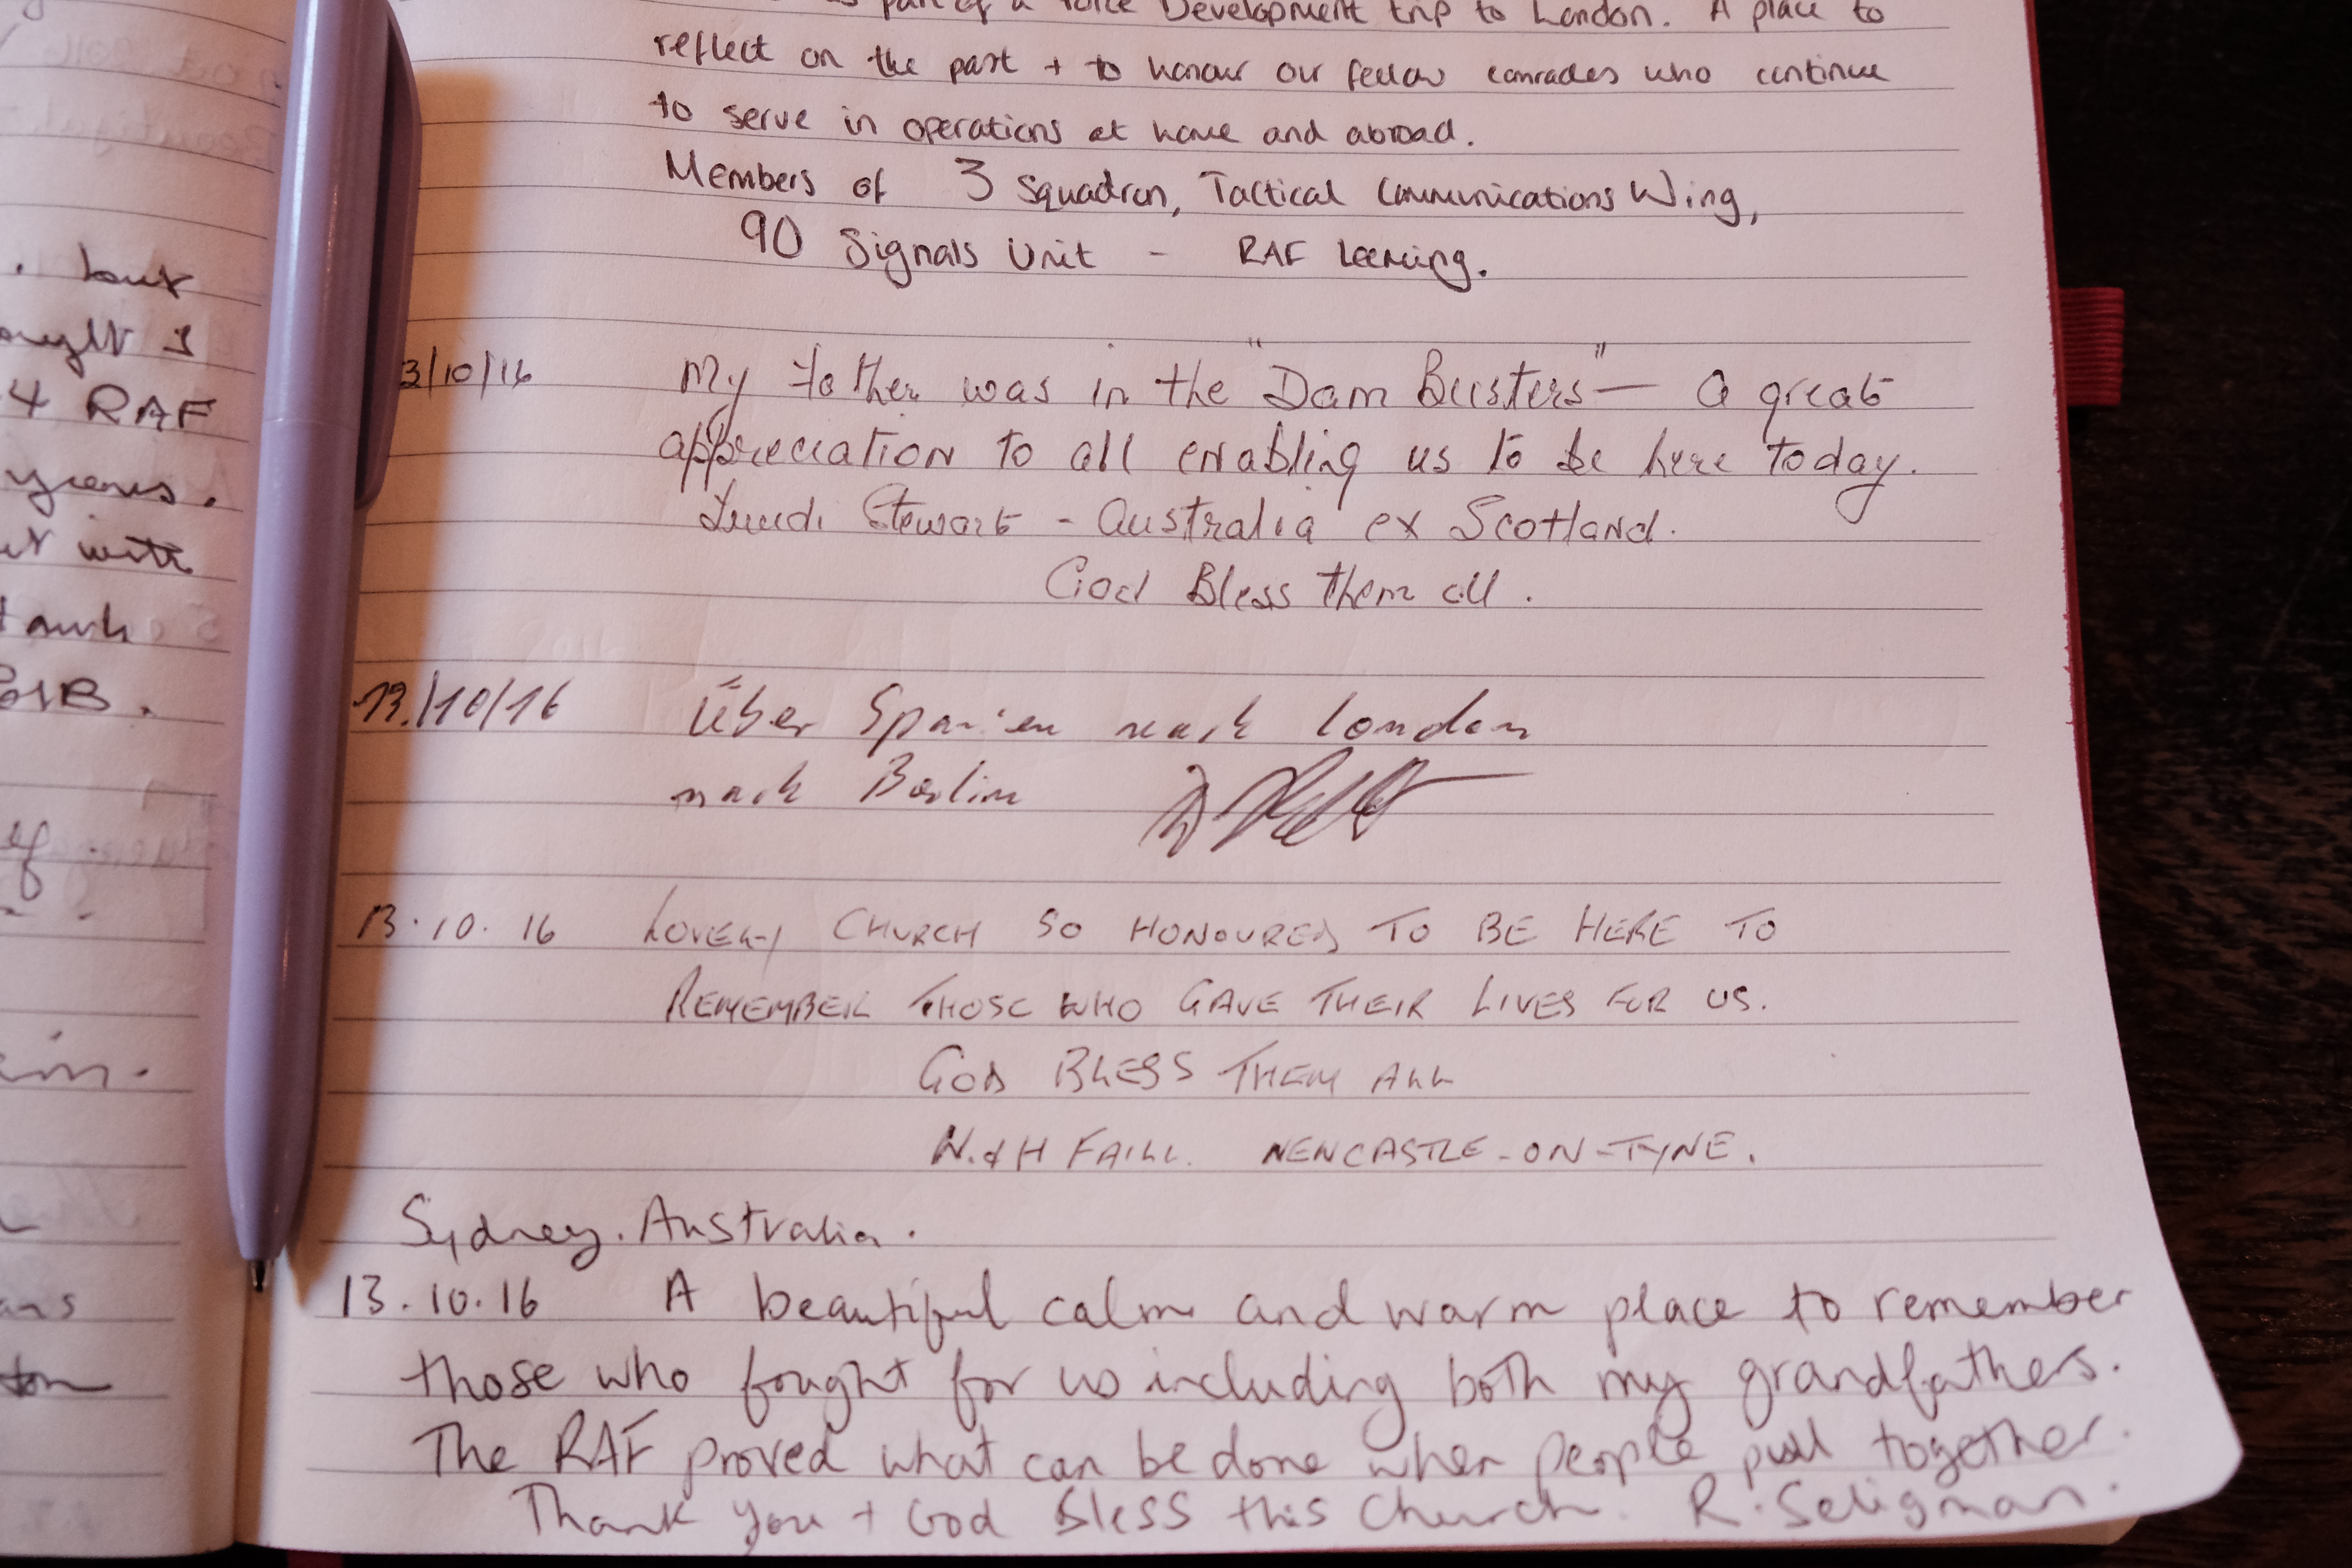 . but
ought I
4 RAF
years.
with
of
as part of a Force Development trip to London. A place to
reflect on the past + to honour our fellow comrades who continue
to serve in operations at home and abroad.
Members of 3 Squadron, Tactical Communications Wing,
90 Signals Unit - RAF Leeming.
3/10/16 My father was in the "Dam Busters" — a great
appreciation to all enabling us to be here today.
Stewart - Australia ex Scotland.
God Bless them all.
13./10/16 Über Spanien nach London
nach Berlin
13.10.16 LOVELY CHURCH SO HONOURED TO BE HERE TO
REMEMBER THOSE WHO GAVE THEIR LIVES FOR US.
GOD BLESS THEM ALL
N.&H FAILL. NEWCASTLE-ON-TYNE.
Sydney. Australia.
13.10.16 A beautiful calm and warm place to remember
those who fought for us including both my grandfathers.
The RAF proved what can be done when people pull together.
Thank you + God Bless this Church. R. Seligman.